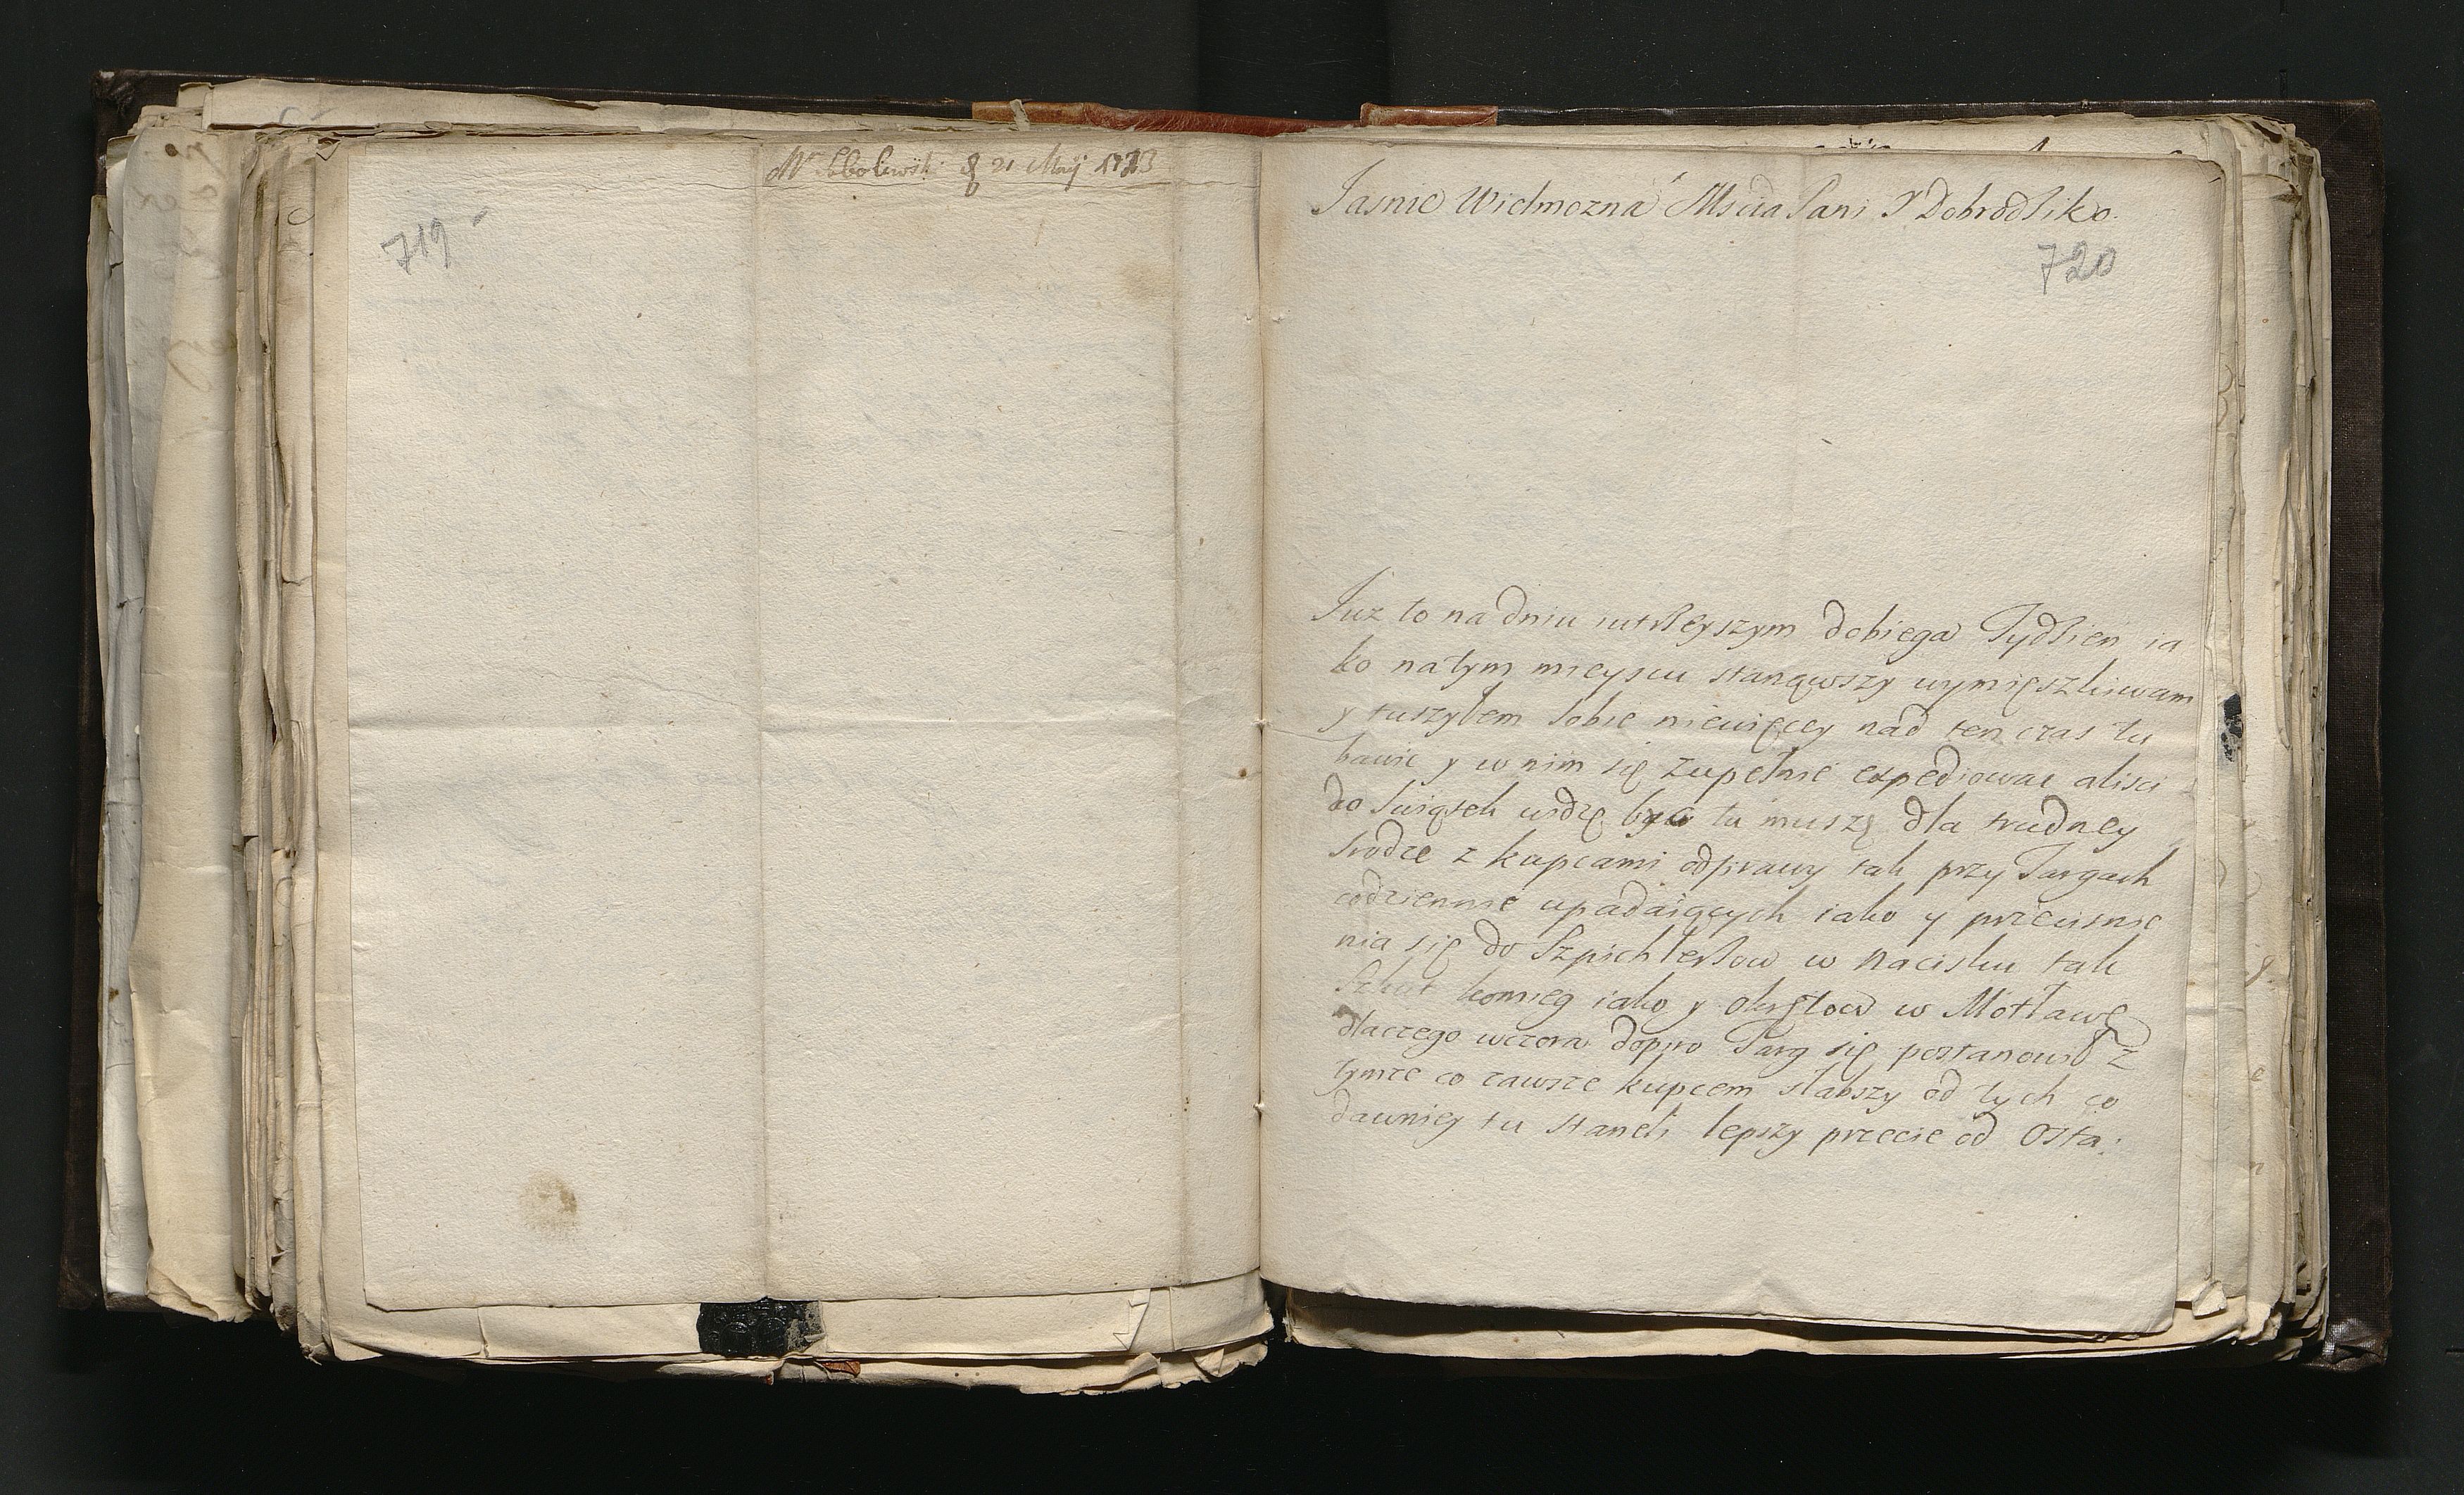 Mr Sobolewski d 21 Maij 1773
719
Jasnie Wielmozna Mscia Pani Y Dobrodsiko.
720
Juz to na dniu iutrseyszym dobiega Tydsien ia
ko natym mieyscu stanąwszy wymięszkiwam
y tuszyłem sobie niewięcey nad ten czas tu
bawic y w nim się zupełnie expediowac alisci
do Swiąsek widzę byc tu muszę dla trudney
srodze z kupcami odprawy tak przy Targach
codziennie upadaiących iako y przecisnie
nia się do Szpichlersow w nacisku tak
Szkut komieg iako y Okrętow w Motławę
dlaczego wczora dopiro Targ się postanowił z
tymze co zawsze kupcem słabszy od tych co
dawniey tu staneli lepszy przecie od Osta: